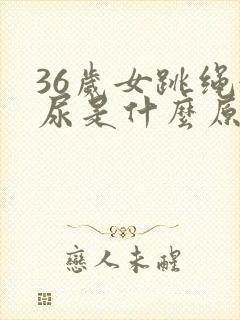 36歲女跳绳
尿是什麼原
戀人未醒